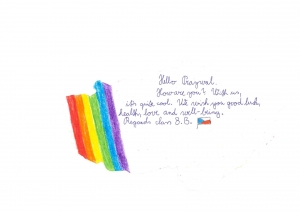 Hello Prazwal.
How are you? With us,
it's quite cool. We wish you good luck,
health, love and well-being.
Regards class 8.B.